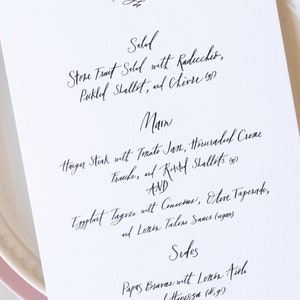 Salad
Stone Fruit Salad with Radicchio,
Pickled Shallot, and Chèvre (gf)
Main
Hanger Steak with Tomato Jam, Horseradish Creme
Fraiche, and Shallots (gf)
AND
Eggplant Tagine with Couscous, Olive Tapenade,
and Lemon Tahini Sauce (vegan)
Sides
Papas Bravas with Lemon Aioli
Harissa (df, gf)